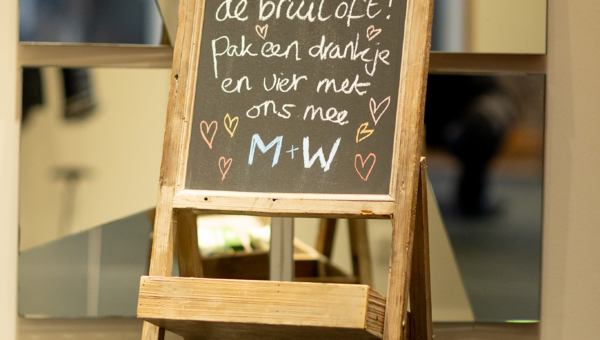 de bruiloft!
pak een drankje
en vier met
ons mee
M+W